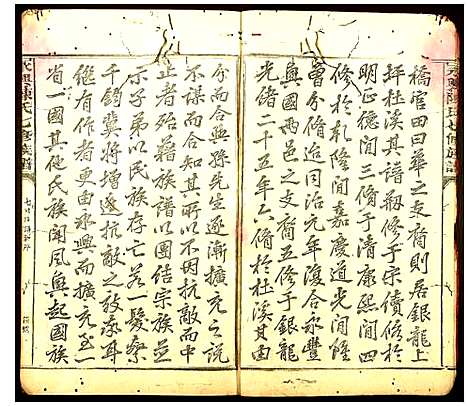 橋官田曰華之支裔則居銀龍上
坪杜溪其譜刱修於宋債修於
明正德間三修于清康熙間四
修於乾隆間嘉慶道光間惟
曾分修迨同治元年復合永豐
興國西分支裔五修于銀龍
光緒二十五年六修於杜溪其由
分而合興孫先生逐漸擴充之說
不謀而合知其所以不因抗敵而中
止者殆族譜以團结宗族並
示子弟以民族存亡若一髮繫
千鈞冀將增遂抗敵之效添耳
继有作者更由永興而擴充至一
省一國其他民族聞風興起國族
永興陳氏七修族譜